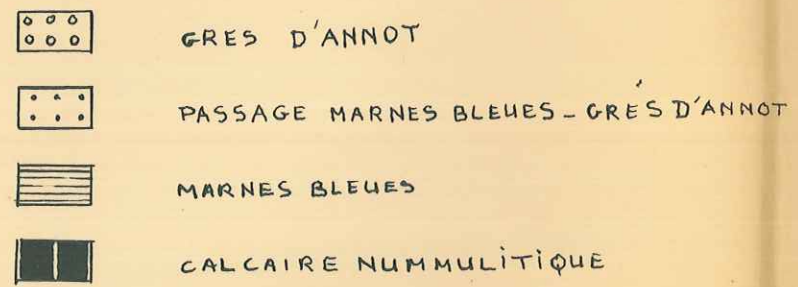 GRES D'ANNOT
PASSAGE MARNES BLEUES - GRÉS D'ANNOT
MARNES BLEUES
CALCAIRE NUMMULITIQUE